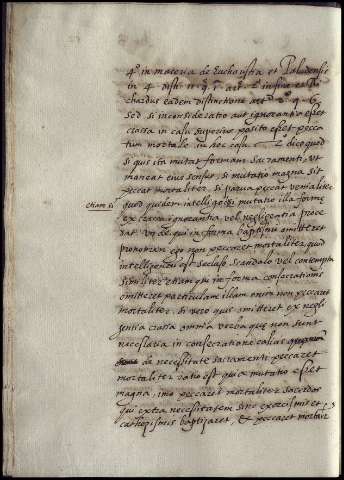 4.º in materia de Eucharistia et Paludensis
in 4 dist. 11 q. 1. art. 2. in fine et
chardus eadem distinctione art.º 3.º q. 6
sed si inconsiderato aut ignorantia esset
crassa in casu superius posito esset pecca
tum mortale in hoc casu. 2.º dico quod
si quis ita mutat formam Sacramenti, ut
maneat eius sensus, si mutatio magna sit
peccat mortaliter, si parua peccat venialiter
etiam si
quod quidem intelligo mutatio illa formę
ex crassa ignorantia vel negligentia proce
dat vnde qui in forma baptismi omitteret
pronomen ego non peccaret mortaliter quod
intelligendum est secluso scandalo vel contemptu
similiter etiam qui in forma consecrationis
omitteret particulam illam enim non peccaret
mortaliter. si vero quis omitteret ex negli
gentia crassa omnia verba quę non sunt
necessaria in consecratione calicis
de necessitate sacramenti peccaret
mortaliter ratio est quia mutatio esset
magna, imo peccaret mortaliter sacerdos
qui extra necessitatem sine exorcismis et
cathecismis baptizaret, & peccaret mortali